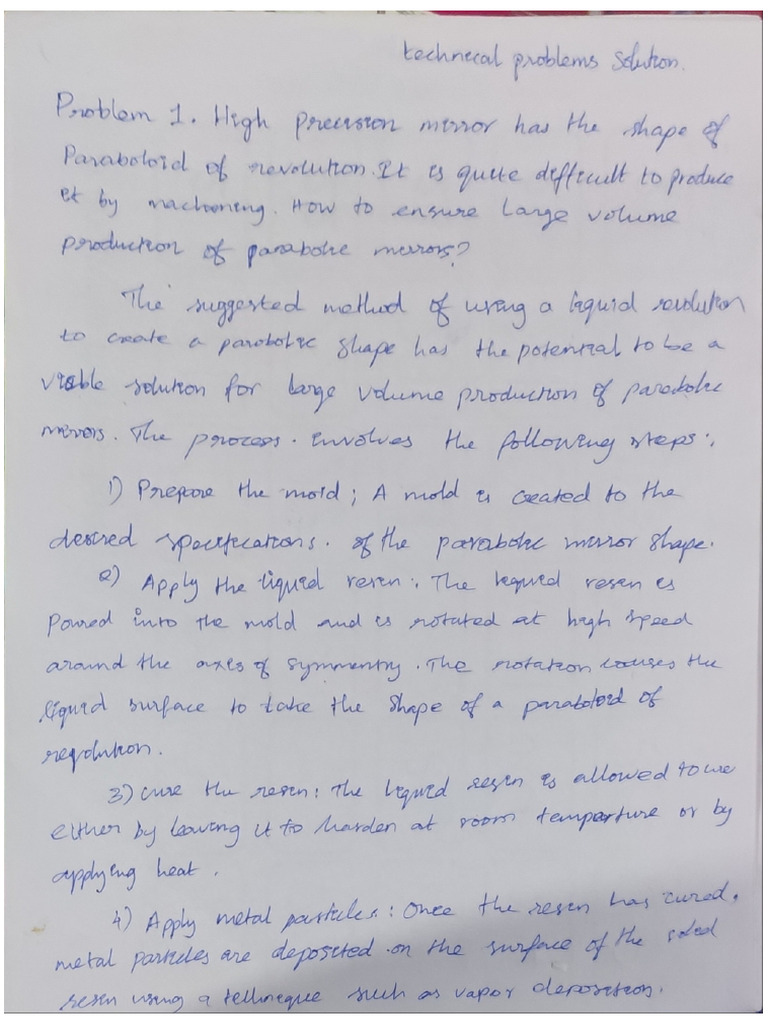 technical problems solution.
Problem 1. High precision mirror has the shape of
Paraboloid of revolution. It is quite difficult to produce
it by machining. How to ensure large volume
production of parabolic mirrors?
The suggested method of using a liquid revolution
to create a parabolic shape has the potential to be a
viable solution for large volume production of parabolic
mirrors. The process. involves the following steps:
1) Prepare the mold; A mold is created to the
desired specifications. of the parabolic mirror shape.
2) Apply the liquid resin: The liquid resin is
Poured into the mold and is rotated at high speed
around the axis of symmentry. The rotation causes the
liquid surface to take the shape of a paraboloid of
revolution.
3) cure the resin: The liquid resin is allowed to cure
either by leaving it to harden at room temparture or by
applying heat.
4) Apply metal particles: Once the resin has cured,
metal particles are deposited on the surface of the solid
resin using a tellineque such as vapor deposition.